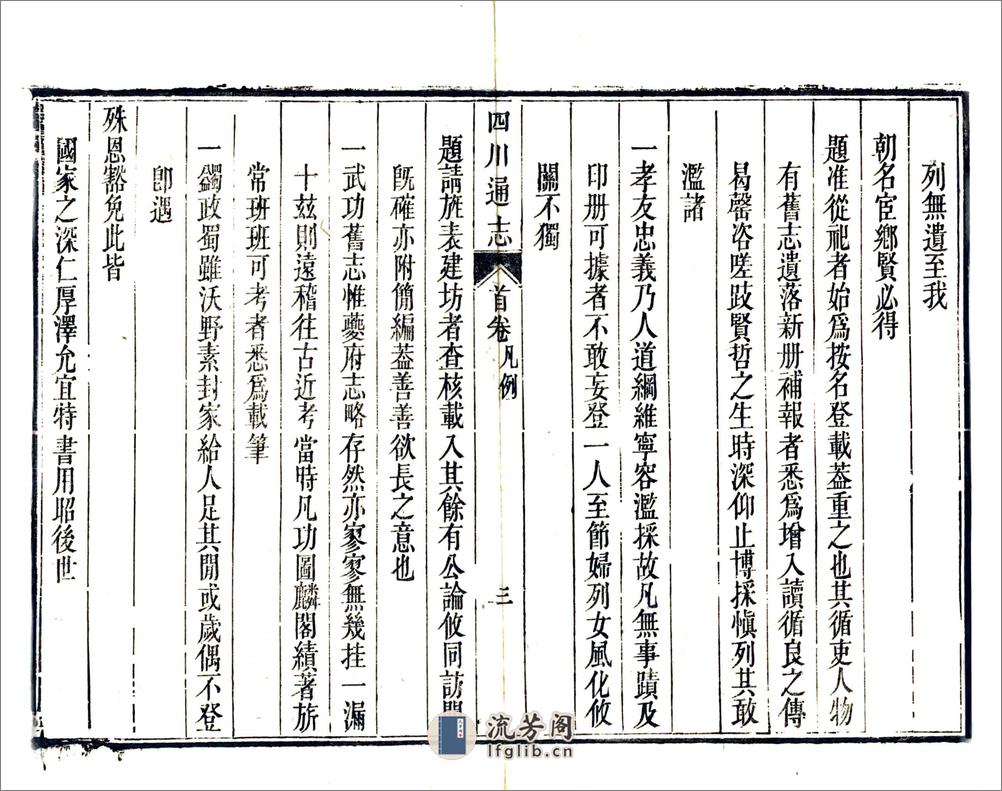 列無遺至我
朝名宦鄉賢必得
題准從祀者始爲按名登載葢重之也其循吏人物
有舊志遺落新册補報者悉爲增入讀循良之傳
曷罄咨嗟跂賢哲之生時深仰止博採愼列其敢
濫諸
一孝友忠義乃人道綱維寧容濫採故凡無事蹟及
印册可據者不敢妄登一人至節婦列女風化攸
關不獨
四川通志
首卷凡例
三
題請旌表建坊者查核載入其餘有公論攸同訪聞
旣確亦附簡編葢善善欲長之意也
一武功舊志惟夔府志略存然亦寥寥無幾挂一漏
十玆則遠稽往古近考當時凡功圖麟閣績著旂
常班班可考者悉爲載筆
一蠲政蜀雖沃野素封家給人足其閒或歲偶不登
卽遇
殊恩豁免此皆
國家之深仁厚澤允宜特書用昭後世
流芳阁
lfglib.cn